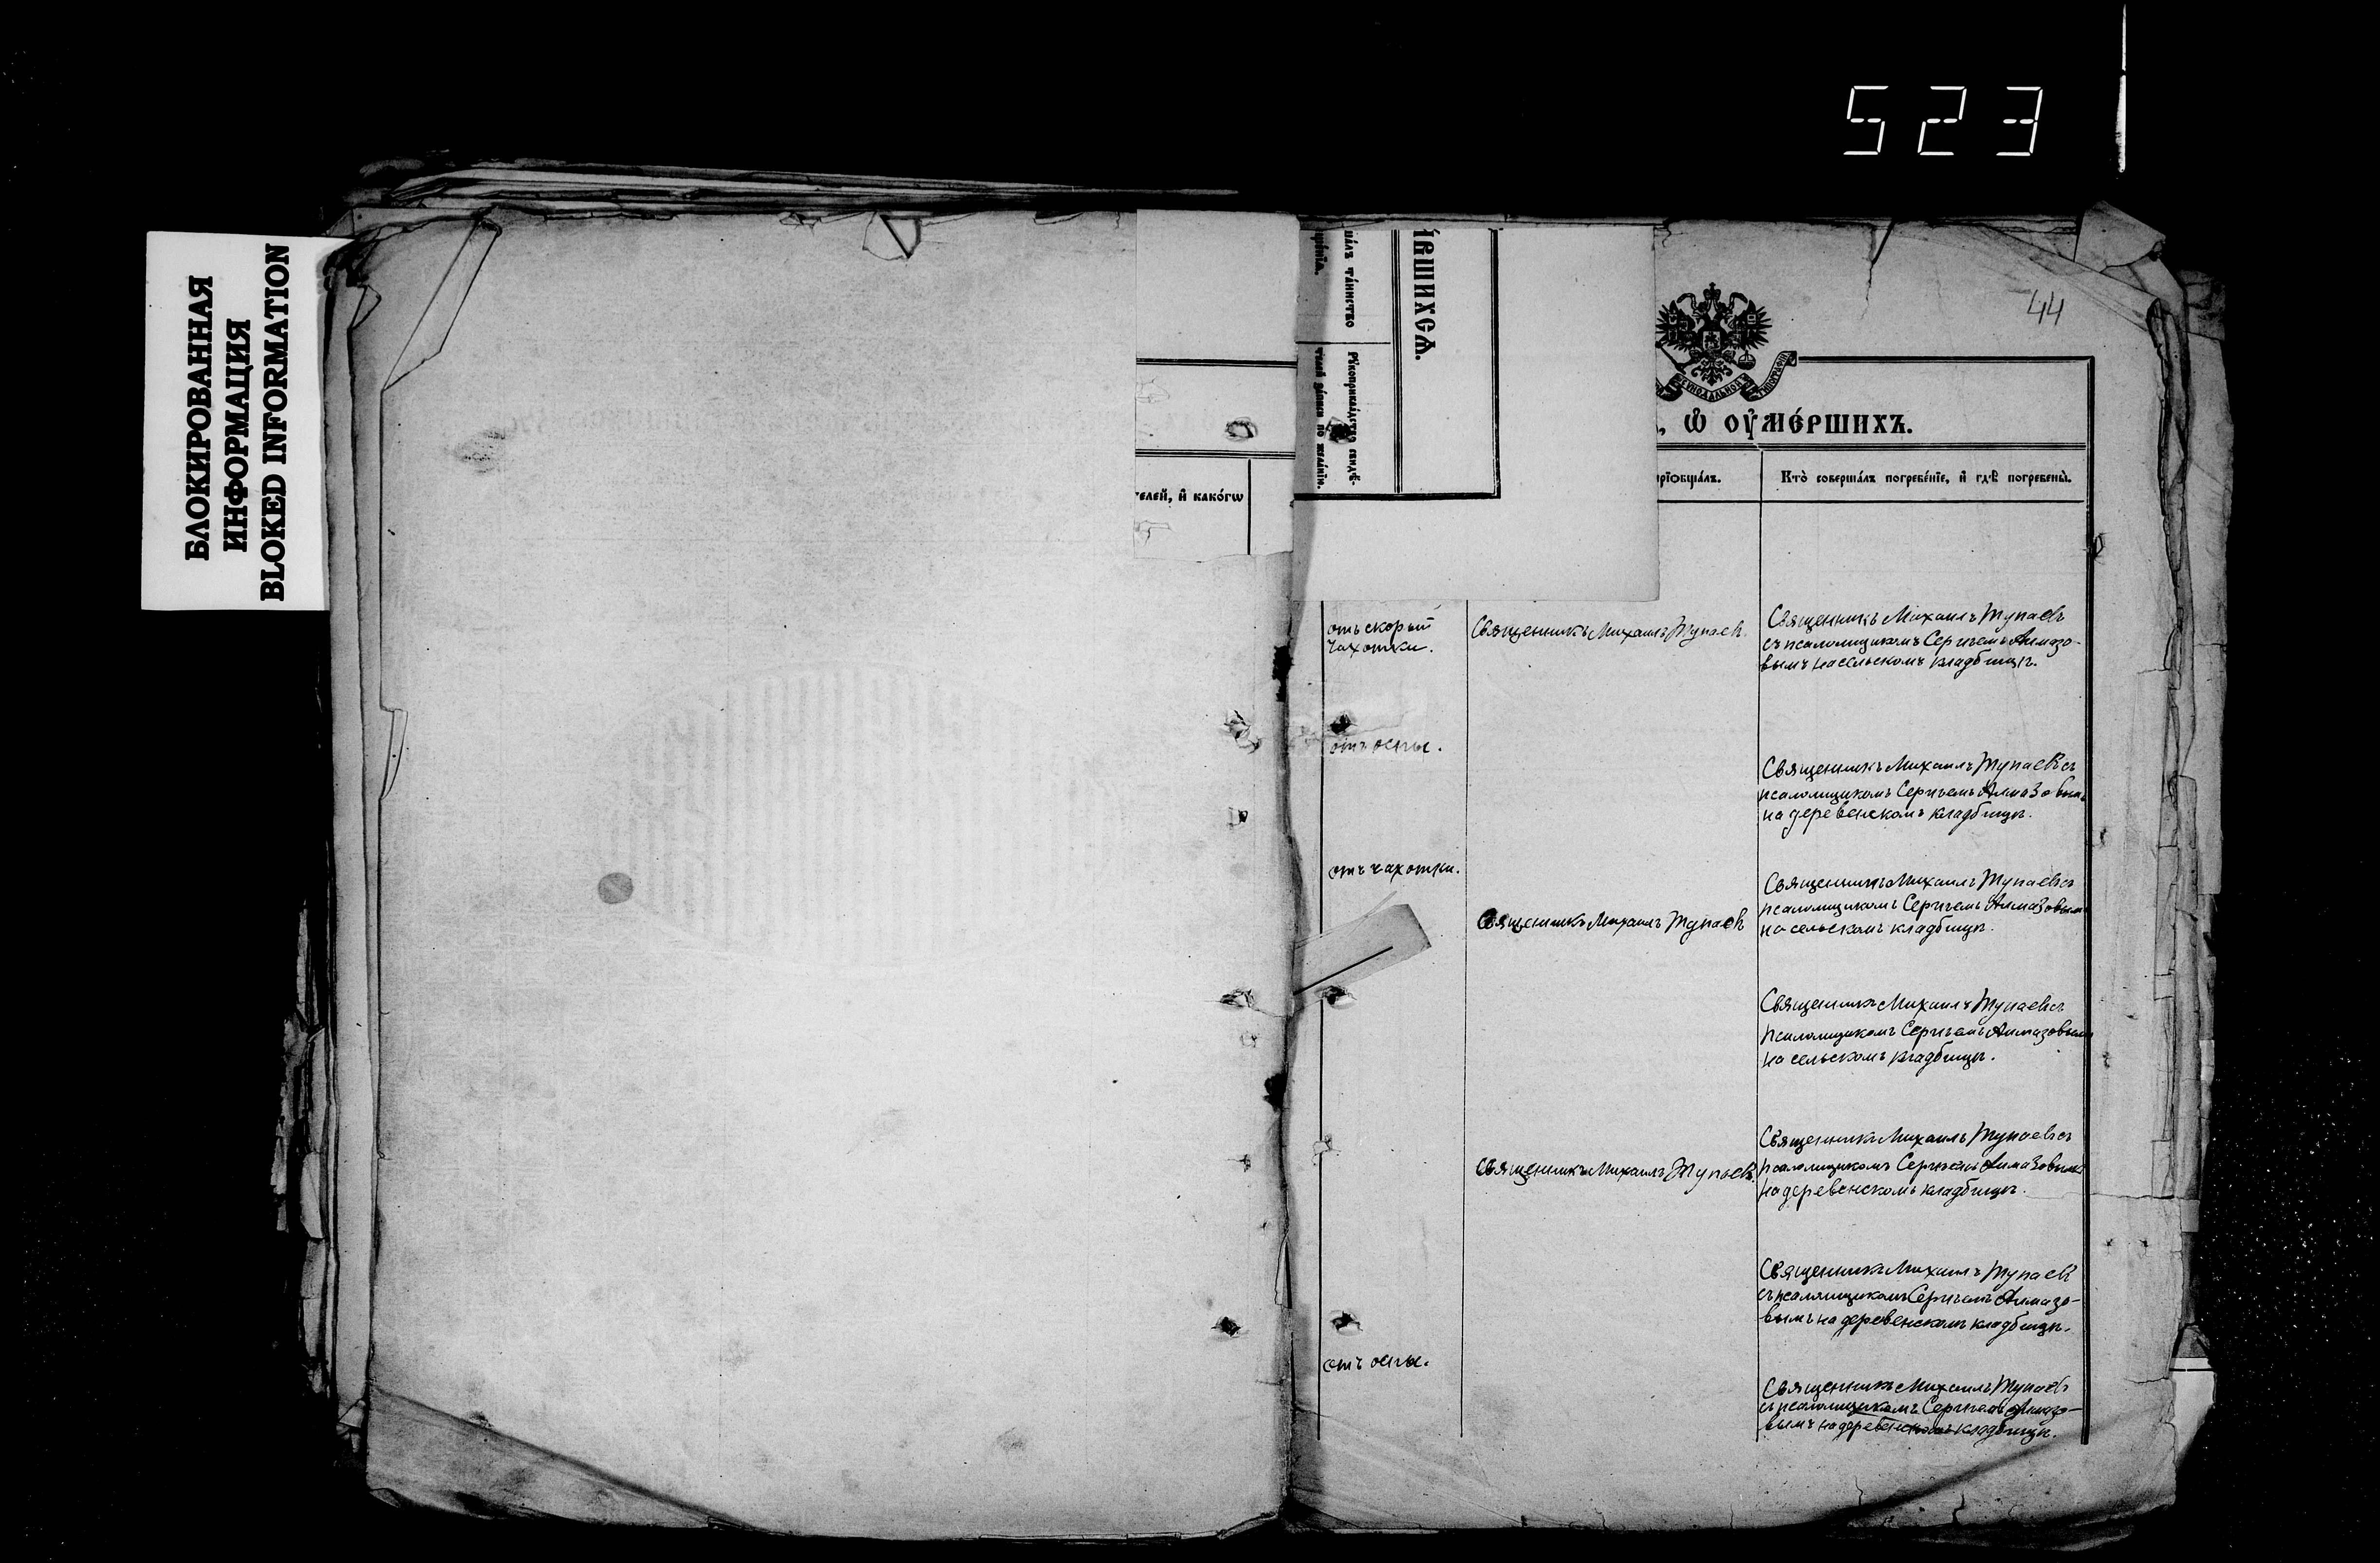 523
БЛОКИРОВАННАЯ
ИНФОРМАЦИЯ
BLOKED INFORMATION
44
СѴНОДАЛЬНОЙ ТИПОГРАФІИ
ѡ҆ ѹ҆МЕ́РШИХЪ.
телей, и҆ како́гѡ
а́вшихсѧ.
та́инство
Рꙋкоприкла́дство свидѣ́-
телей за́писи по жела́нїю.
прїѻбща́лъ.
Кто̀ соверша́лъ погребе́нїе, и҆ гдѣ̀ погребены̀.
отъ скорой
чахотки.
Священникъ Михаилъ Тупаевъ.
Священникъ Михаилъ Тупаевъ
съ псаломщикомъ Сергіемъ Алмазо-
вымъ на сельскомъ кладбищѣ.
отъ оспы.
Священникъ Михаилъ Тупаевъ съ
псаломщикомъ Сергіемъ Алмазовымъ
на деревенскомъ кладбищѣ.
отъ чахотки.
Священникъ Михаилъ Тупаевъ
Священникъ Михаилъ Тупаевъ съ
псаломщикомъ Сергіемъ Алмазовымъ
на сельскомъ кладбищѣ.
Священникъ Михаилъ Тупаевъ съ
псаломщикомъ Сергіемъ Алмазовымъ
на сельскомъ кладбищѣ.
Священникъ Михаилъ Тупаевъ.
Священникъ Михаилъ Тупаевъ съ
псаломщикомъ Сергіемъ Алмазовымъ
на деревенскомъ кладбищѣ.
Священникъ Михаилъ Тупаевъ
съ псаломщикомъ Сергіемъ Алмазо-
вымъ на деревенскомъ кладбищѣ.
отъ оспы.
Священникъ Михаилъ Тупаевъ
съ псаломщикомъ Сергіемъ Алмазо-
вымъ на деревенскомъ кладбищѣ.